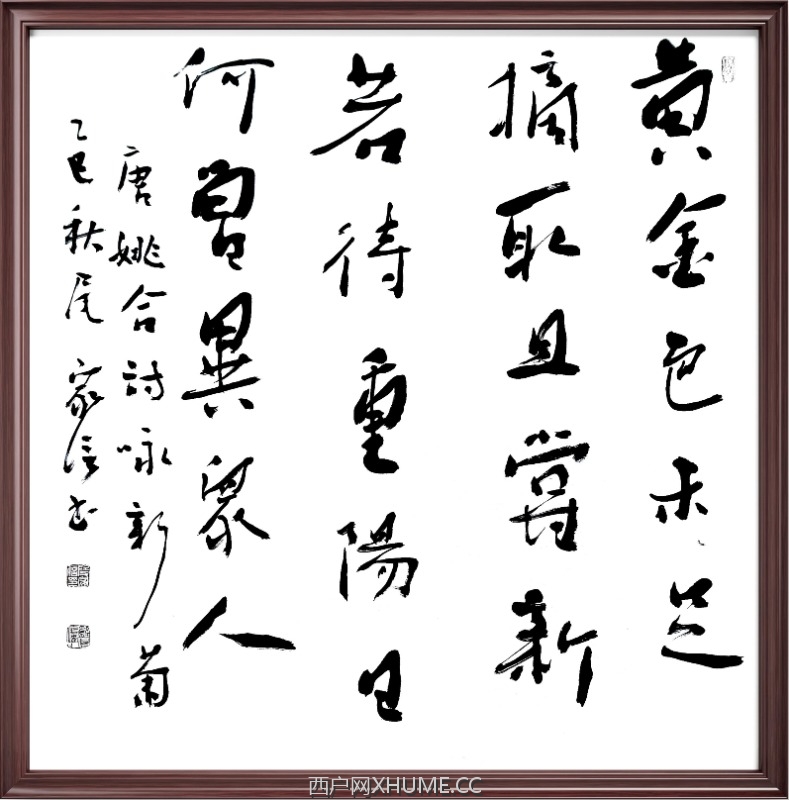 黃金色未足
摘取且嘗新
若待重陽日
何曾異衆人
唐姚合詩咏新菊
乙巳秋尾家信书
西户网XHUME.CC